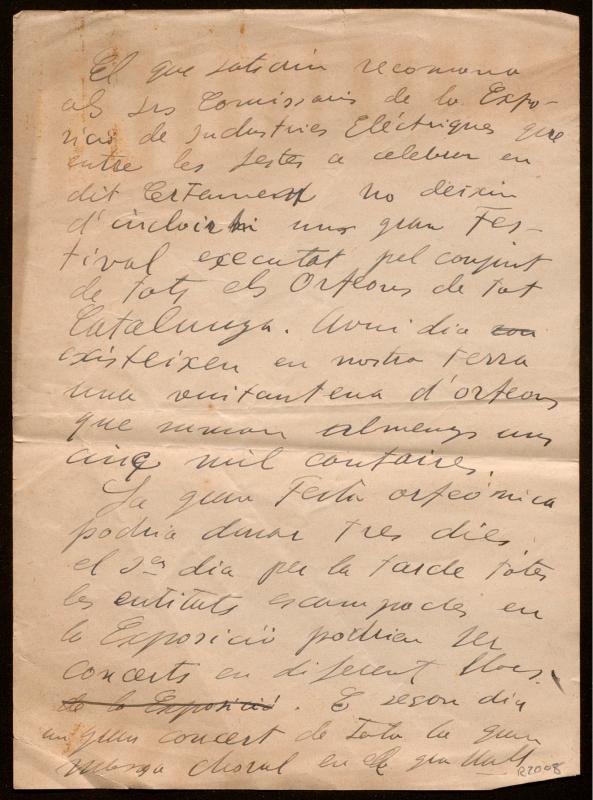 El que sotscriu recomana
als srs Comissaris de la Expo-
sició de Industries Eléctriques que
entre les festes a celebrar en
dit Certament no deixin
d'incloirhi una gran Fes-
tival executat pel conjunt
de tots els Orfeons de tot
Catalunya. Avui dia
existeixen en nostra terra
una vuitantena d'orfeons
que suman almenys uns
cinq mil cantaires.
La gran Festa orfeónica
podria durar tres dies
el 1er dia per la tarde totes
les entitats escampades en
la Exposició podrien fer
concerts en diferent llocs.
de la Exposició. El segon dia
un gran concert de tota la gran
massa choral en el gran Hall
R2008